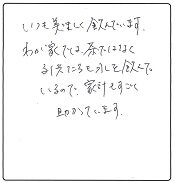 いつも美味しく飲んでいます。
わが家では、茶ではなく
お水を飲んで
いるので、家計もすごく
助かっています。